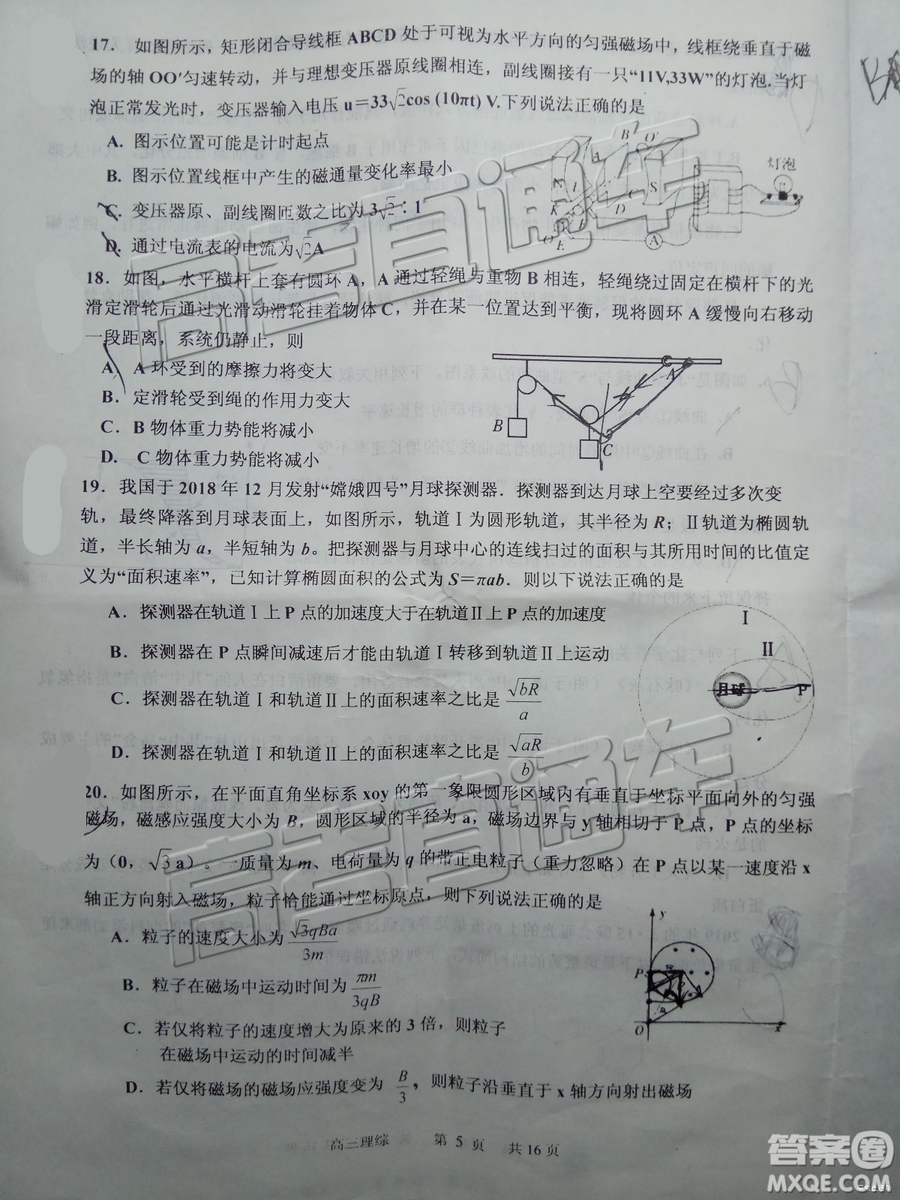 17. 如图所示，矩形闭合导线框 ABCD 处于可视为水平方向的匀强磁场中，线框绕垂直于磁
场的轴 OO′匀速转动，并与理想变压器原线圈相连，副线圈接有一只“11V,33W”的灯泡.当灯
泡正常发光时，变压器输入电压 u＝33√2cos (10πt) V.下列说法正确的是
A. 图示位置可能是计时起点
B. 图示位置线框中产生的磁通量变化率最小
C. 变压器原、副线圈匝数之比为 3√2∶1
D. 通过电流表的电流为√2A
B O′
N A S D K E A
灯泡
18. 如图，水平横杆上套有圆环 A，A 通过轻绳与重物 B 相连，轻绳绕过固定在横杆下的光
滑定滑轮后通过光滑动滑轮挂着物体C，并在某一位置达到平衡，现将圆环 A 缓慢向右移动
一段距离，系统仍静止，则
A. A 环受到的摩擦力将变大
B. 定滑轮受到绳的作用力变大
C. B 物体重力势能将减小
D. C 物体重力势能将减小
A
B
C
19. 我国于 2018 年 12 月发射“嫦娥四号”月球探测器．探测器到达月球上空要经过多次变
轨，最终降落到月球表面上，如图所示，轨道Ⅰ为圆形轨道，其半径为 R；Ⅱ轨道为椭圆轨
道，半长轴为 a，半短轴为 b。把探测器与月球中心的连线扫过的面积与其所用时间的比值定
义为“面积速率”，已知计算椭圆面积的公式为 S＝πab．则以下说法正确的是
A. 探测器在轨道Ⅰ上 P 点的加速度大于在轨道Ⅱ上 P 点的加速度
B. 探测器在 P 点瞬间减速后才能由轨道Ⅰ转移到轨道Ⅱ上运动
C. 探测器在轨道Ⅰ和轨道Ⅱ上的面积速率之比是 √bR/a
D. 探测器在轨道Ⅰ和轨道Ⅱ上的面积速率之比是 √aR/b
Ⅰ
Ⅱ
月球 P
20. 如图所示，在平面直角坐标系 xoy 的第一象限圆形区域内有垂直于坐标平面向外的匀强
磁场，磁感应强度大小为 B，圆形区域的半径为 a，磁场边界与 y 轴相切于 P 点，P 点的坐标
为（0，√3 a）。一质量为 m、电荷量为 q 的带正电粒子（重力忽略）在 P 点以某一速度沿 x
轴正方向射入磁场，粒子恰能通过坐标原点，则下列说法正确的是
A. 粒子的速度大小为 √3qBa/3m
B. 粒子在磁场中运动时间为 πm/3qB
C. 若仅将粒子的速度增大为原来的 3 倍，则粒子
在磁场中运动的时间减半
D. 若仅将磁场的磁场应强度变为 B/3，则粒子沿垂直于 x 轴方向射出磁场
y
P
O x
高三理综 第 5 页 共 16 页
高考直通车
高考直通车
答案圈
MXQE.COM